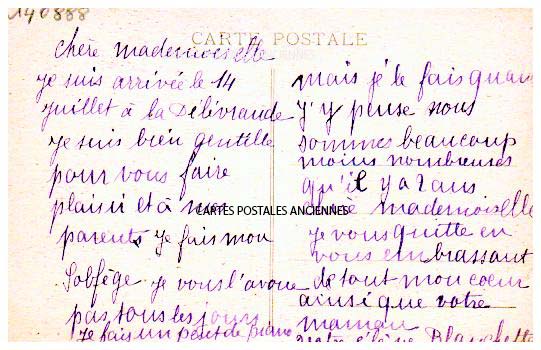 140888
CARTE POSTALE
chère mademoiselle
je suis arrivée le 14
juillet à la Délévrande
je suis bien gentille
pour vous faire
plaisir et à mes
parents je fais mon
Solfège je vous l'avoue
pas tous les jours
je fais un peut de piano
mais je le fais quan
j'y pense nous
sommes beaucoup
moins nombreuses
qu'il y a 2 ans
chère mademoiselle
je vous quitte en
vous embrassant
de tout mon coeur
ainsi que votre
maman
votre élève Blanchette
CARTES POSTALES ANCIENNES